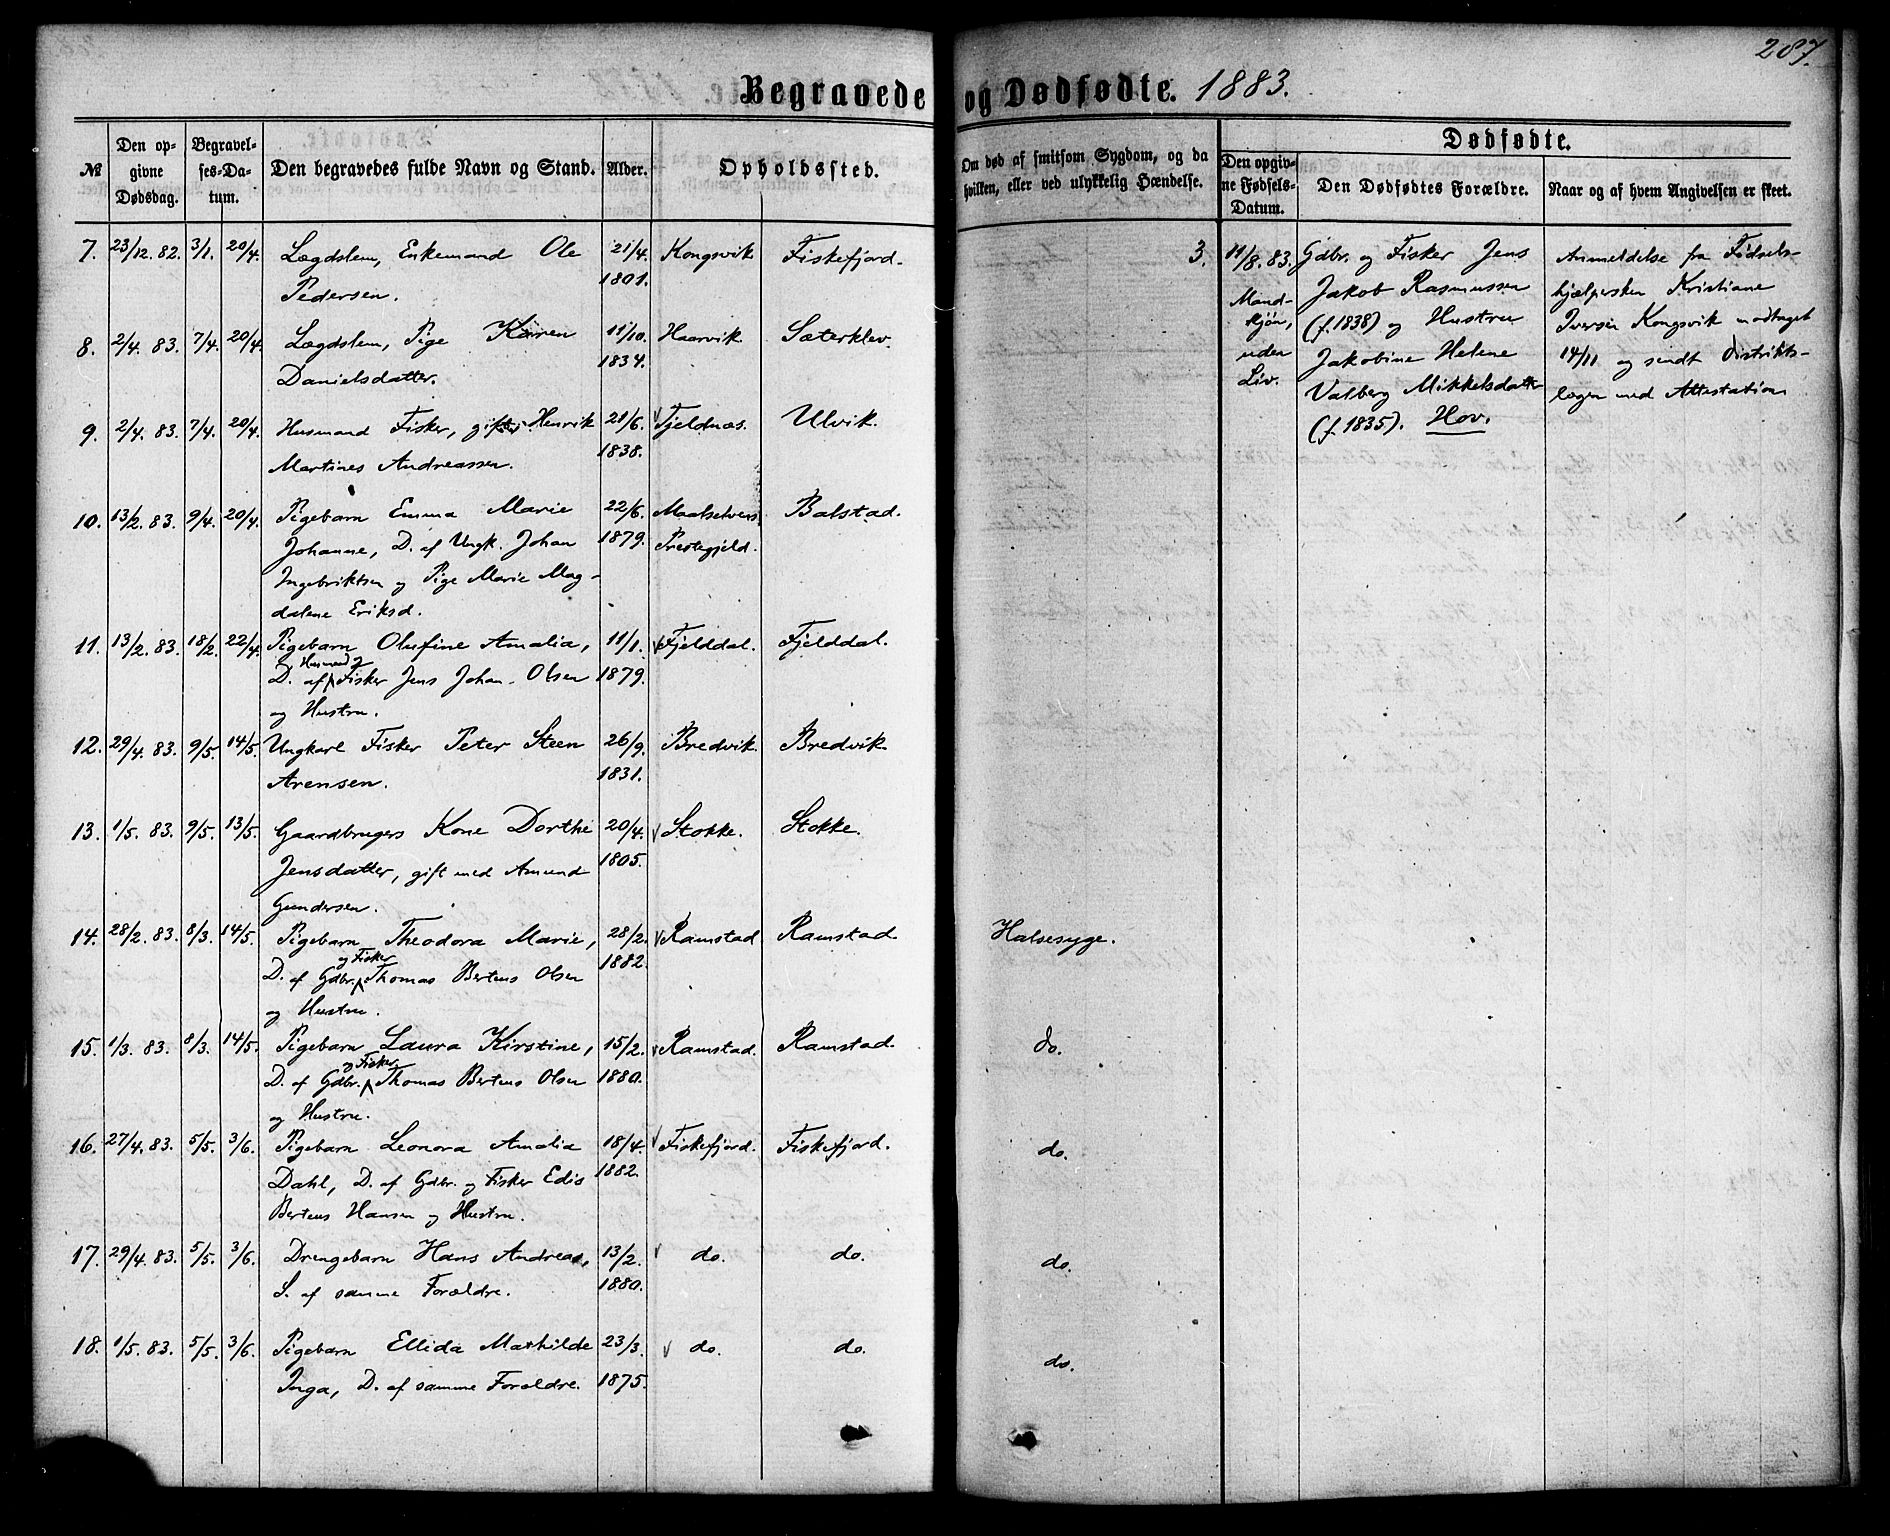 287.
Begravede og Dødfødte. 1883.
№ Den opgivne Dødsdag. Begravelses-Datum. Den begravedes fulde Navn og Stand. Alder. Opholdssted.
Om død af smitsom Sygdom, og da hvilken, eller ved ulykkelig Hændelse.
Dødfødte.
Den opgivne Fødsels-Datum. Den Dødfødtes Forældre. Naar og af hvem Angivelsen er skeet.
7. 23/12. 82. 3/1. 20/4. Lægdslem, Enkemand Ole 21/4. Kongsvik Fiskefjord.
Pedersen. 1801.
8. 2/4. 83. 7/4. 20/4. Lægdslem, Pige Karen 11/10. Haarvik. Sæterklev.
Danielsdatter. 1834.
9. 2/4. 83. 7/4. 20/4. Husmand Fisker, gift, Henrik 21/6. Fjeldnæs. Ulvik.
Martines Andreassen. 1838.
10. 13/2. 83. 9/4. 20/4. Pigebarn Emma Marie 22/6. Maalselvens Balstad.
Johanne, D. af Ungk. Johan 1879. Prestegjeld.
Ingebriktsen og Pige Marie Mag-
dalene Eriksd.
11. 13/2. 83. 18/2. 22/4. Pigebarn Olufine Amalia, 11/1. Fjelddal. Fjelddal.
Husmand og
D. af Fisker Jens Johan Olsen 1879.
og Hustru.
12. 29/4. 83. 9/5. 14/5. Ungkarl Fisker Peter Steen 26/9. Bredvik. Bredvik.
Arensen. 1831.
13. 1/5. 83. 9/5. 13/5. Gaardbrugers Kone Dorthe 20/4. Stokke. Stokke.
Jensdatter, gift med Amund 1805.
Gundersen.
14. 28/2. 83. 8/3. 14/5. Pigebarn Theodora Marie, 28/2. Ramstad Ramstad. Halsesyge.
og Fisker
D. af Gdbr. Thomas Bertens Olsen 1882.
og Hustru.
15. 1/3. 83. 8/3. 14/5. Pigebarn Laura Kirstine, 15/2. Ramstad. Ramstad. do.
og Fisker
D. af Gdbr. Thomas Bertens Olsen 1880.
og Hustru.
16. 27/4. 83. 5/5. 3/6. Pigebarn Leonora Amalia 18/4. Fiskefjord. Fiskefjord. do.
Dahl, D. af Gdbr. og Fisker Edis 1882.
Bertens Hansen og Hustru.
17. 29/4. 83. 5/5. 3/6. Drengebarn Hans Andreas, 13/2. do. do. do.
S. af samme Forældre. 1880.
18. 1/5. 83. 5/5. 3/6. Pigebarn Ellida Mathilde 23/3. do. do. do.
Inga, D. af samme Forældre. 1875.
3. 11/8. 83.
Mand-
kjøn,
uden
Liv.
Gdbr. og Fisker Jens
Jakob Rasmussen
(f. 1838) og Hustru
Jakobine Helene
Valberg Mikkelsdatter
(f. 1835). Hov.
Anmeldelse fra Fødsels-
hjælpersken Kristiane
Iversen Kongsvik modtaget
14/11 og sendt Distrikts-
lægen med Attestation